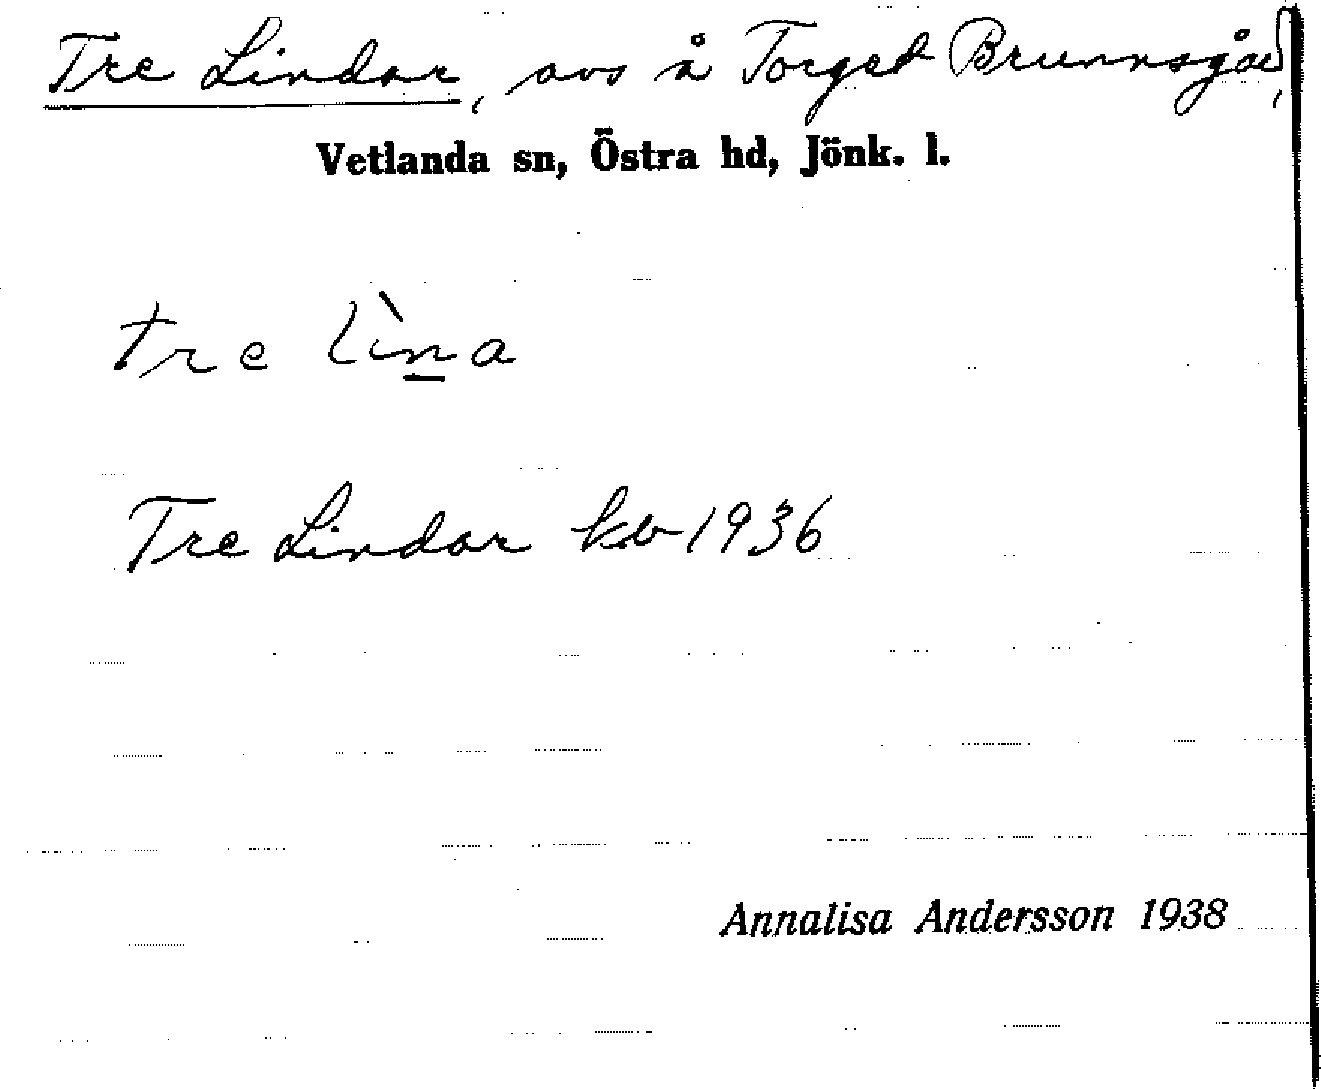 Tre Lindar, avs å Torget Brunnsgård,
Vetlanda sn, Östra hd, Jönk. l.
tre lìna
Tre Lindar kb 1936
Annalisa Andersson 1938